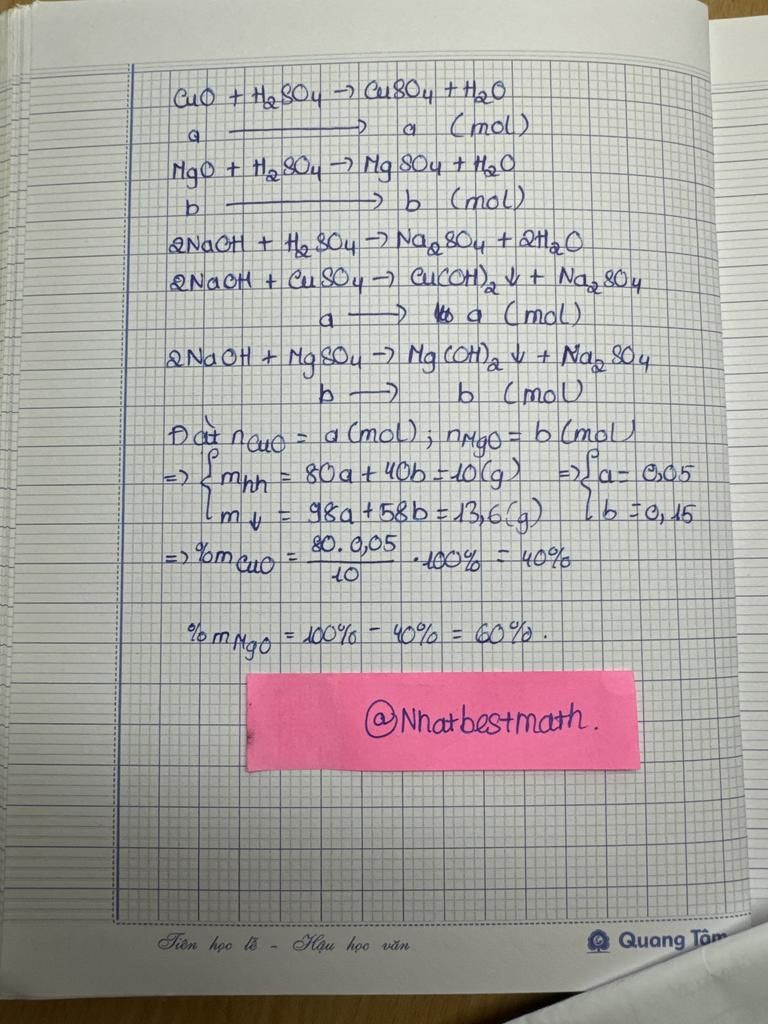 CuO + H₂SO₄ → CuSO₄ + H₂O
a → a (mol)
MgO + H₂SO₄ → MgSO₄ + H₂O
b → b (mol)
2NaOH + H₂SO₄ → Na₂SO₄ + 2H₂O
2NaOH + CuSO₄ → Cu(OH)₂↓ + Na₂SO₄
a → a (mol)
2NaOH + MgSO₄ → Mg(OH)₂↓ + Na₂SO₄
b → b (mol)
Đặt nCuO = a(mol); nMgO = b(mol)
=> { mhh = 80a + 40b = 10(g) => { a = 0,05
m↓ = 98a + 58b = 13,6(g) b = 0,15
=> %mCuO = 80.0,05/10 . 100% = 40%
%mMgO = 100% - 40% = 60%.
@Nhatbestmath.
Tiên học lễ - Hậu học văn
Quang Tâm